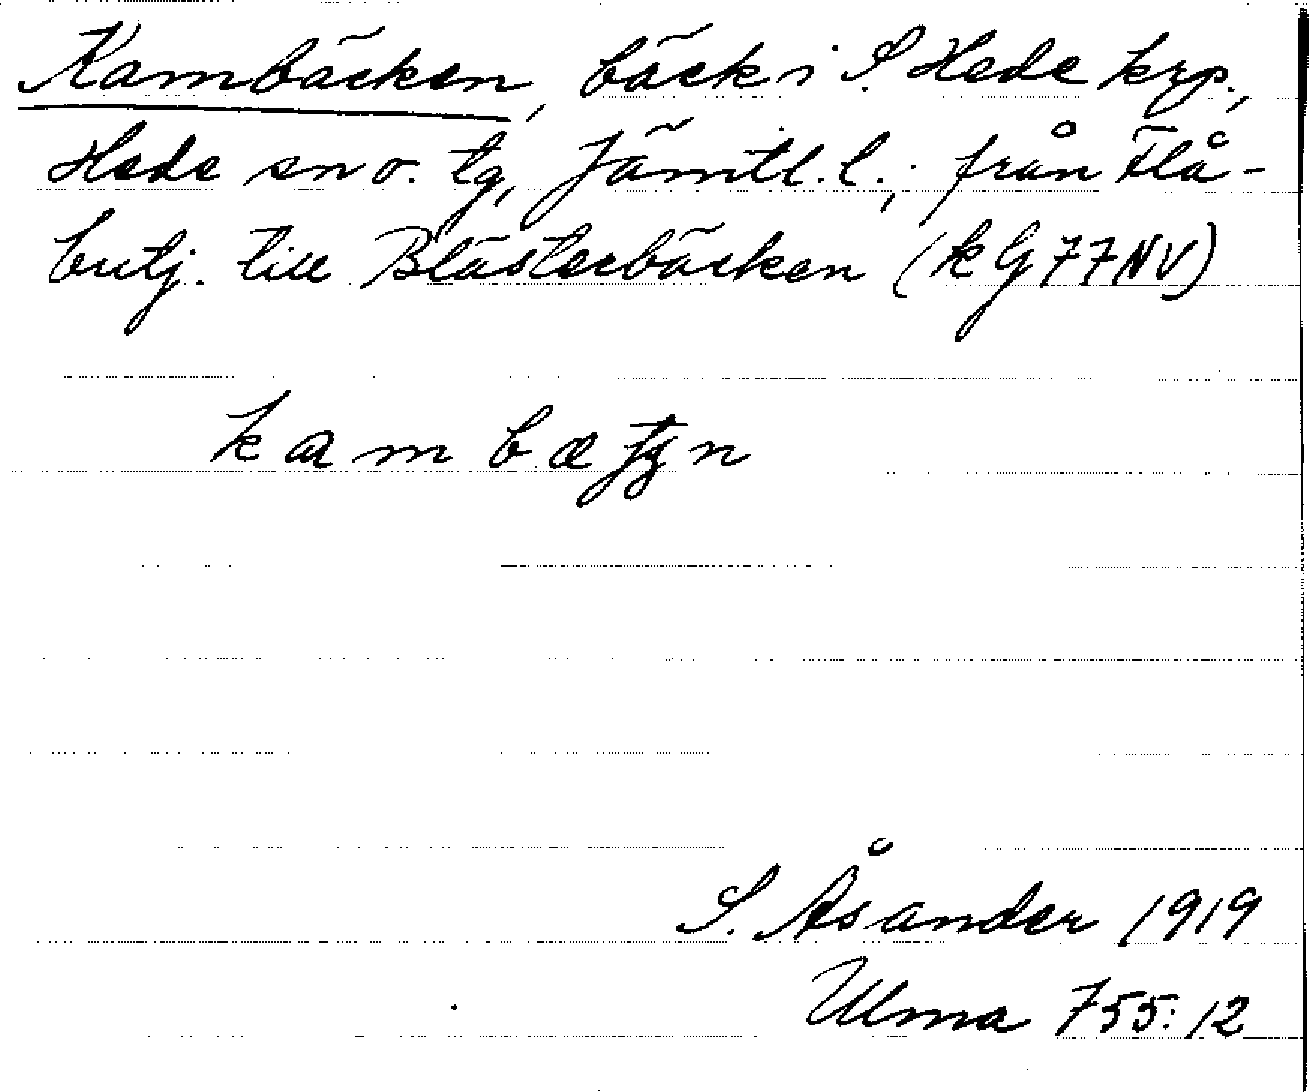 Kambäcken, bäck i S. Hede krp.,
Hede sn o. tg, Jämtl. l.; från Flå-
butj. till Blästerbäcken (kG77NV)
S. Åsander 1919
Ulma 755:12